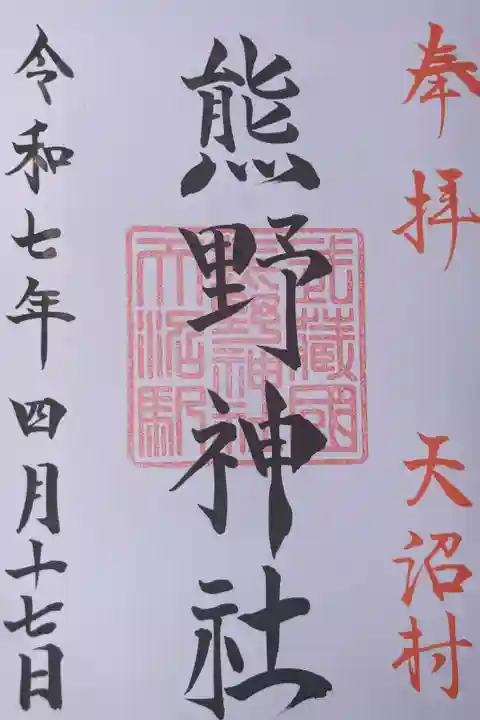 奉拝 天沼村
熊野神社
武蔵國
熊野神社
天沼駅
令和七年 四月十七日